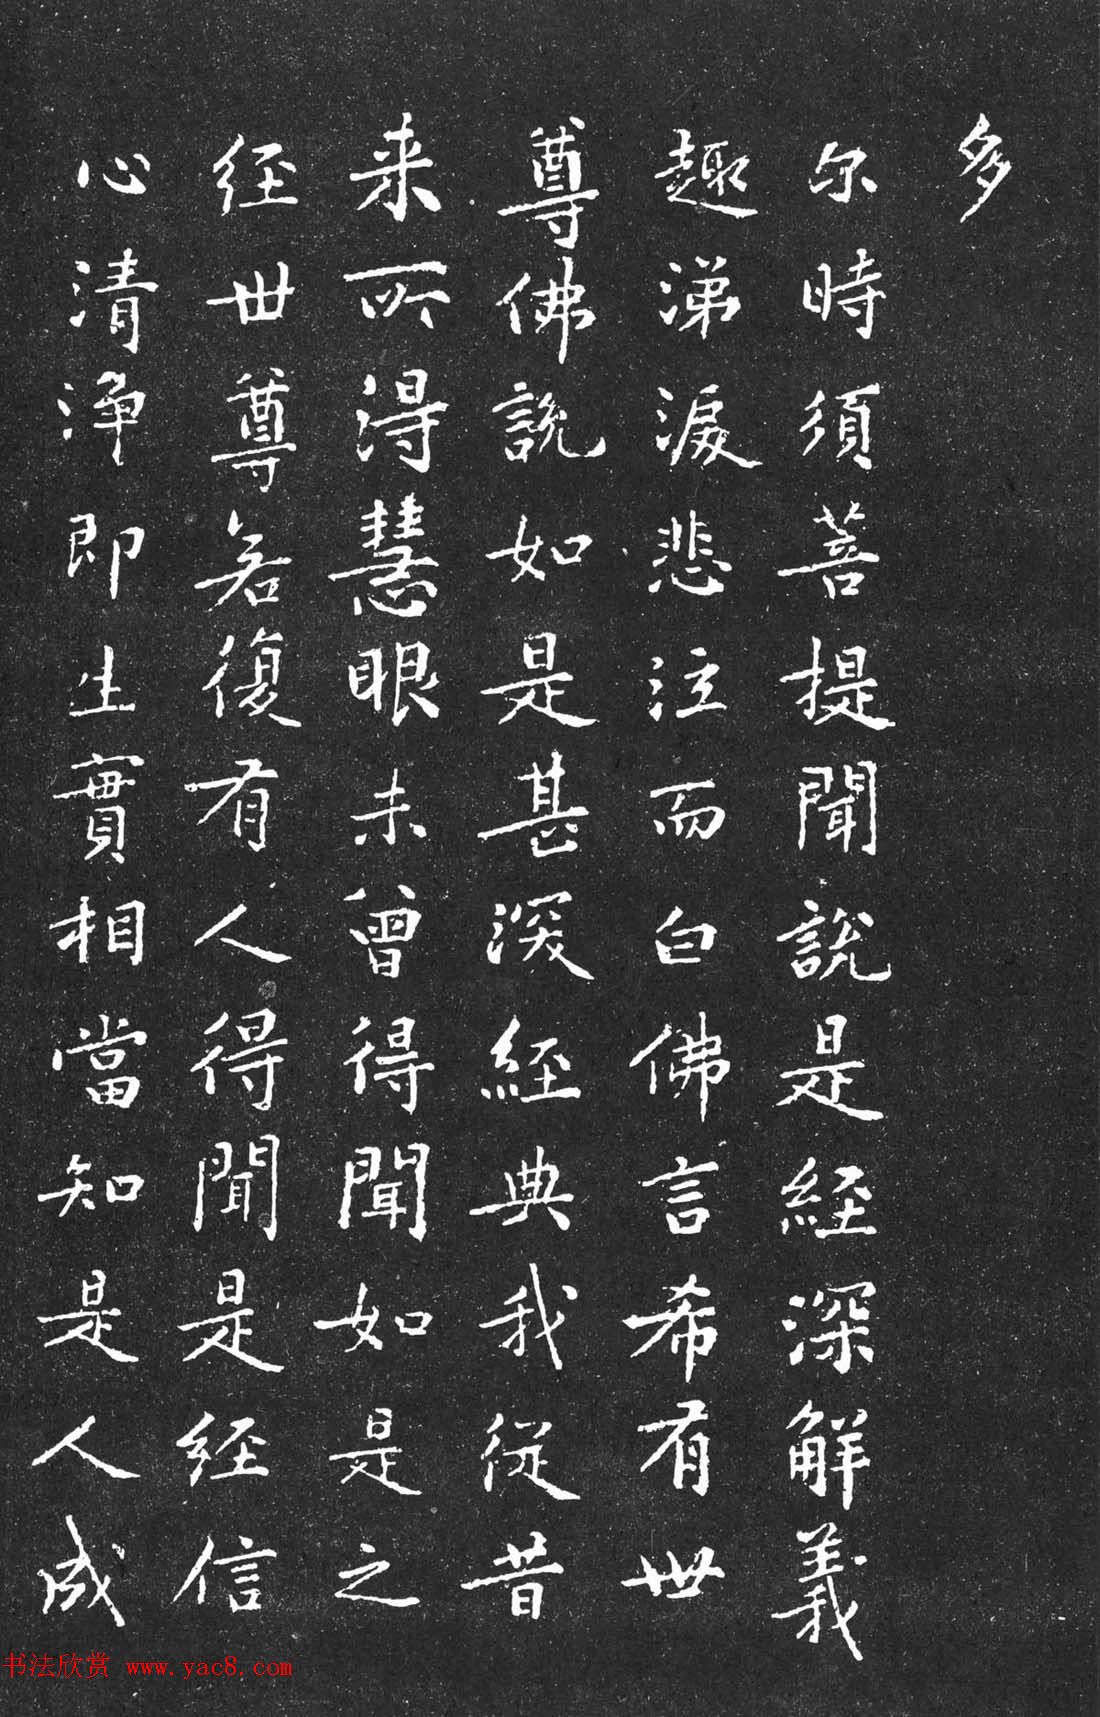 多
尔時須菩提聞說是經深解義
趣涕淚悲泣而白佛言希有世
尊佛說如是甚深經典我從昔
来所得慧眼未曾得聞如是之
経世尊若復有人得聞是経信
心清淨即生實相當知是人成
书法欣赏 www.yac8.com